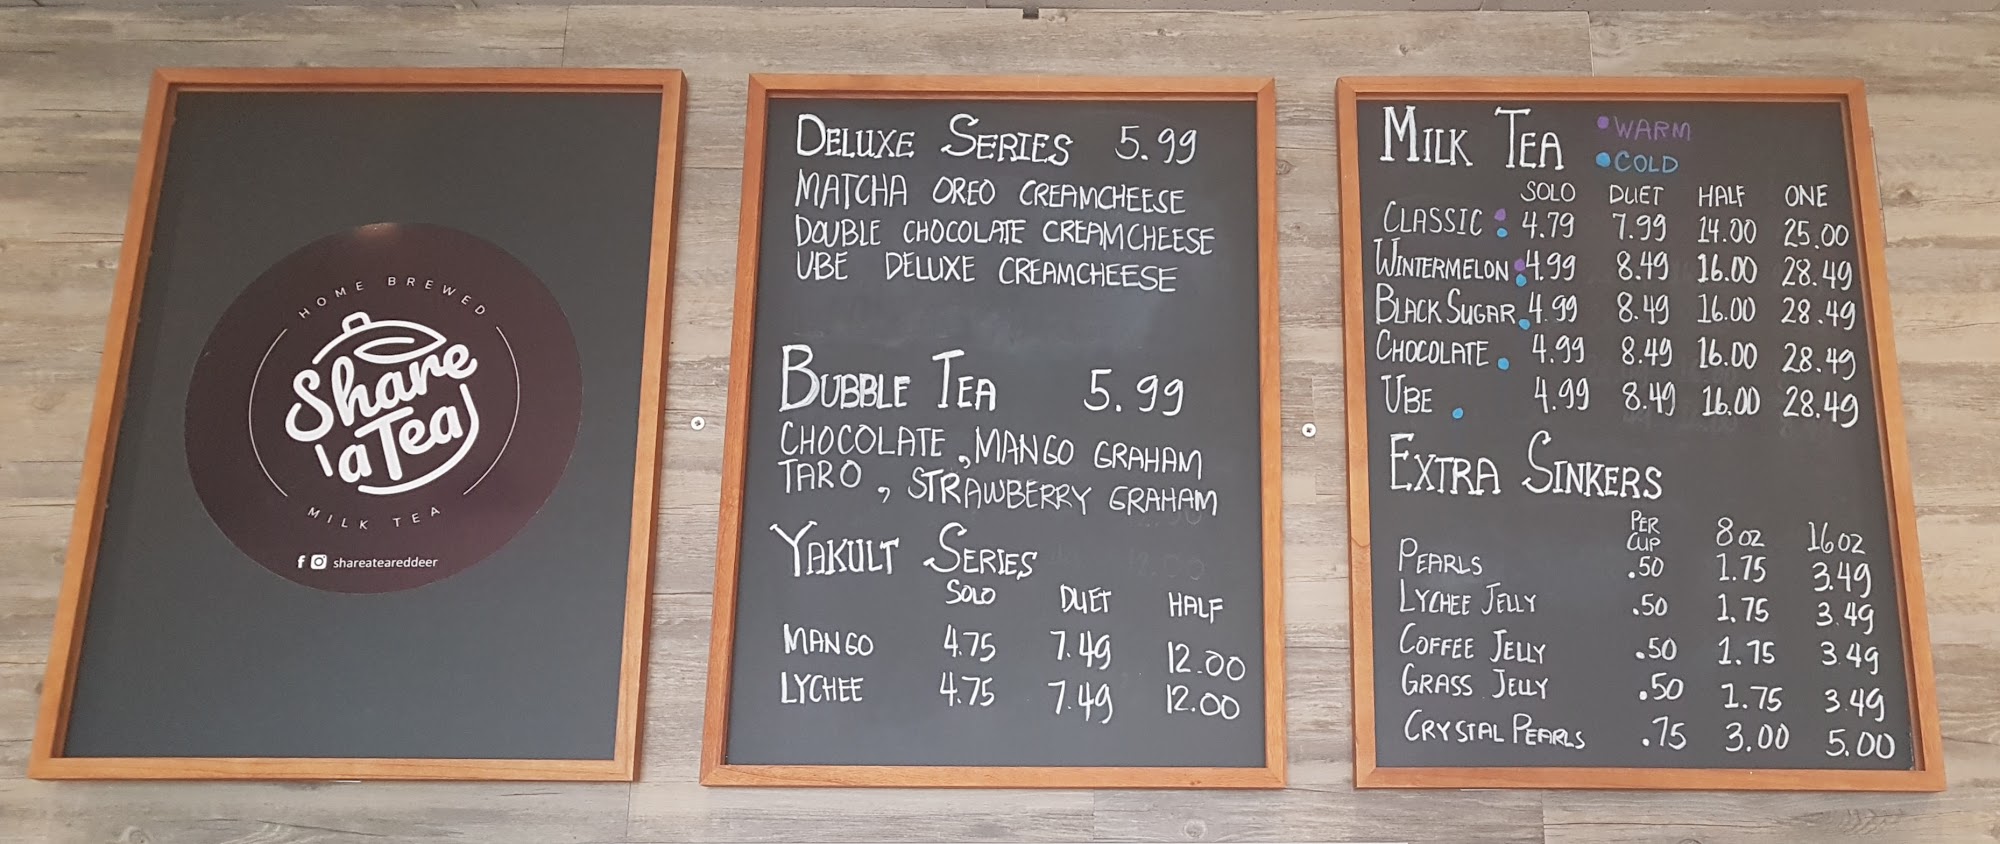 HOME BREWED
Share
a Tea
MILK TEA
f shareateareddeer
DELUXE SERIES 5.99
MATCHA OREO CREAMCHEESE
DOUBLE CHOCOLATE CREAMCHEESE
UBE DELUXE CREAMCHEESE
BUBBLE TEA 5.99
CHOCOLATE, MANGO GRAHAM
TARO, STRAWBERRY GRAHAM
YAKULT SERIES
SOLO DUET HALF
MANGO 4.75 7.49 12.00
LYCHEE 4.75 7.49 12.00
MILK TEA • WARM
• COLD
SOLO DUET HALF ONE
CLASSIC 4.79 7.99 14.00 25.00
WINTERMELON 4.99 8.49 16.00 28.49
BLACK SUGAR 4.99 8.49 16.00 28.49
CHOCOLATE 4.99 8.49 16.00 28.49
UBE 4.99 8.49 16.00 28.49
EXTRA SINKERS
PER CUP 8 OZ 16 OZ
PEARLS .50 1.75 3.49
LYCHEE JELLY .50 1.75 3.49
COFFEE JELLY .50 1.75 3.49
GRASS JELLY .50 1.75 3.49
CRYSTAL PEARLS .75 3.00 5.00